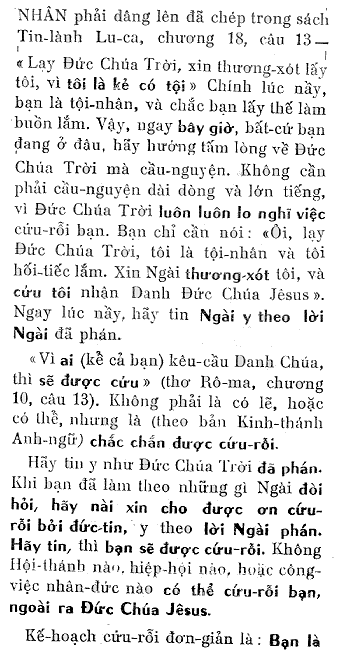 NHÂN phải dâng lên đã chép trong sách
Tin-lành Lu-ca, chương 18, câu 13 —
« Lạy Đức Chúa Trời, xin thương-xót lấy
tôi, vì tôi là kẻ có tội » Chính lúc nầy,
bạn là tội-nhận, và chắc bạn lấy thế làm
buồn lắm. Vậy, ngay bây giờ, bất-cứ bạn
đang ở đâu, hãy hướng tấm lòng về Đức
Chúa Trời mà cầu-nguyện. Không cần
phải cầu-nguyện dài dòng và lớn tiếng,
vì Đức Chúa Trời luôn luôn lo nghĩ việc
cứu-rỗi bạn. Bạn chỉ cần nói : «Ôi, lạy
Đức Chúa Trời, tôi là tội-nhân và tôi
hối-tiếc lắm. Xin Ngài thương-xót tôi, và
cứu tôi nhận Danh Đức Chúa Jêsus».
Ngay lúc nầy, hãy tin Ngài y theo lời
Ngài đã phán.
« Vì ai (kể cả bạn) kêu-cầu Danh Chúa,
thì sẽ được cứu » (thơ Rô-ma, chương
10, câu 13). Không phải là có lẽ, hoặc
có thể, nhưng là (theo bản Kinh-thánh
Anh-ngữ) chắc chắn được cứu-rỗi.
Hãy tin y như Đức Chúa Trời đã phán.
Khi bạn đã làm theo những gì Ngài đòi
hỏi, hãy nài xin cho được ơn cứu-
rỗi bởi đức-tin, y theo lời Ngài phán.
Hãy tin, thì bạn sẽ được cứu-rỗi. Không
Hội-thánh nào, hiệp-hội nào, hoặc công-
việc nhân-đức nào có thể cứu-rỗi bạn,
ngoài ra Đức Chúa Jêsus.
Kế-hoạch cứu-rỗi đơn-giản là : Bạn là